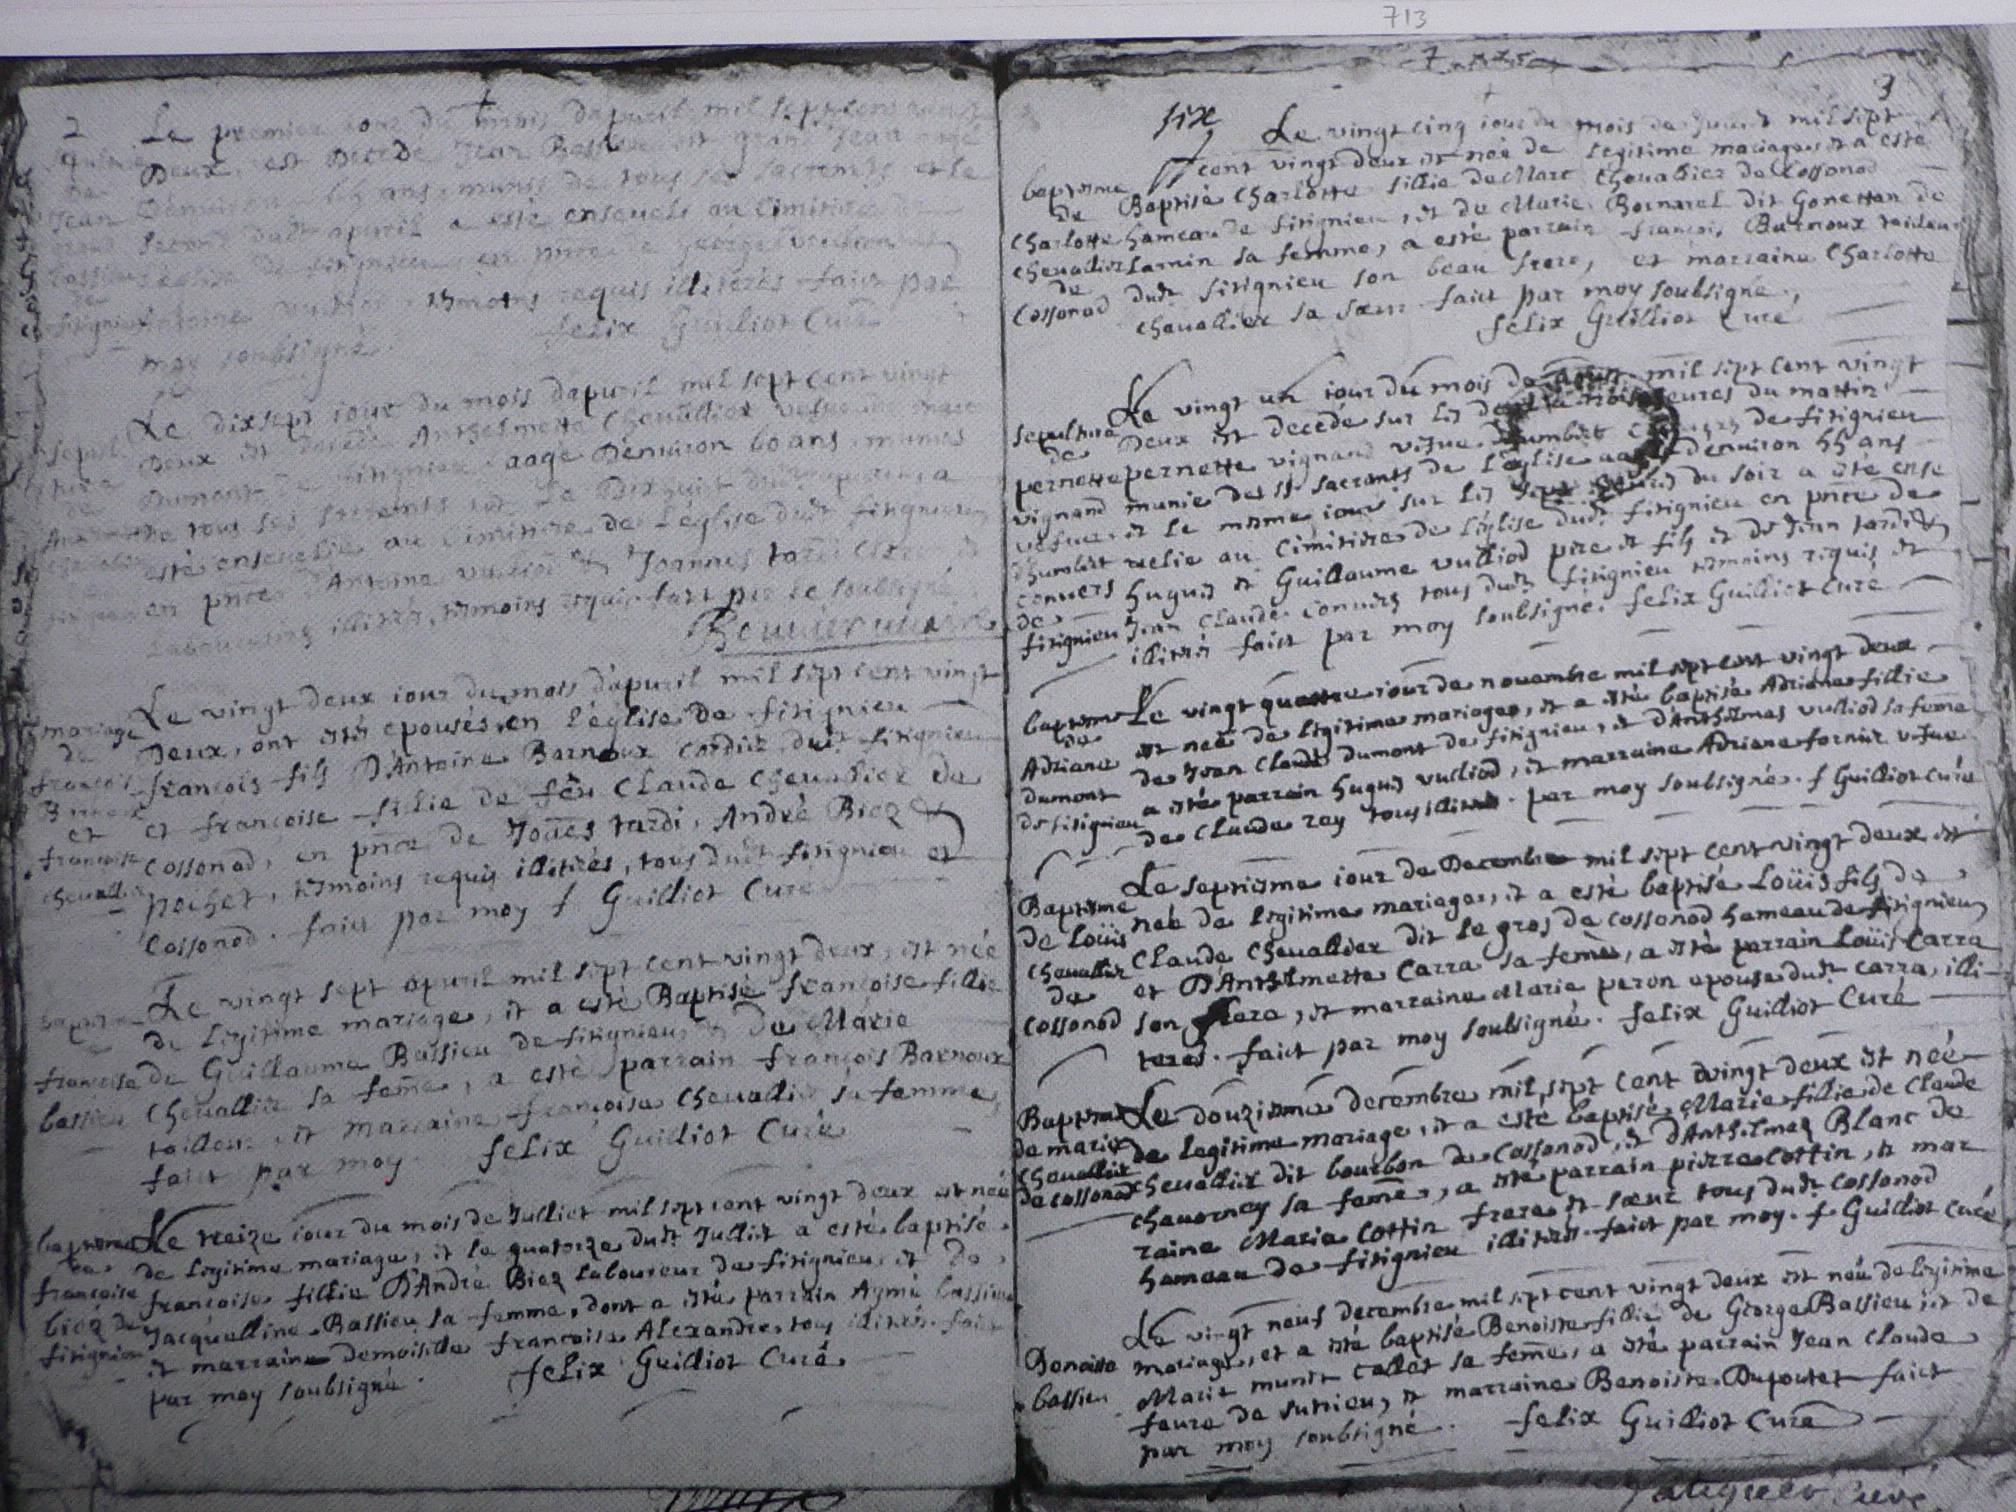 713
2
Le premier iour du mois dapuril mil sept cent vingt
Deux, est Decede Jean Bassieu dit grand Jean aagé
Denuiron 66 ans, munis de tous ses sacrements et le
second dudt apuril a esté enseueli au cimitiere de
l'eglise de fitignieu en pnce de george vullion
Antoine vullion temoins requis illiterés faict par
moy soubsigné.
felix Guilliot Curé
Le dixsept iour du mois dapuril mil sept cent vingt
Deux est decedé Anthelmette Cheuallier vefue
Dumont de fitignieu aagé Denuiron 60 ans, munies
de tous ses sacrements et le Dixhuict dudt apuril, a
esté enseuelie au cimitiere de l'église dudt fitignieu
en pnce D'Antoine vulliod & Joannes tardi
Laboureurs illitérés, temoins requis fait par le soubsigné
mariage
de
francois
Barnoux
et
francoise
cheuallier
Le vingt deux iour du mois d'apuril mil sept cent vingt
Deux, ont estés epousés en l'église de fitignieu
francois fils D'Antoine Barnoux Cordier dudt fitignieu
et francoise fillie de feu Claude Cheuallier de
Cossonod, en pnce de Joues tardi, André Biez &
pochet, temoins requis illiterés, tous dudt fitignieu et
Cossonod. faict par moy f Guilliot Curé
baptesme
francoise
bassieu
Le vingt sept apuril mil sept cent vingt deux, est née
de legitime mariage, et a esté Baptisé francoise fillie
de Guillaume Bassieu de fitignieu, & De Marie
Cheuallier sa feme, a esté parrain francois Barnoux
tailleur, et marraine francoise Cheuallier sa femme,
faict par moy. felix Guilliot Curé
baptesme
de
francoise
biez de
fitignieu
Le treize iour du mois de Julliet mil sept cent vingt deux est née
de legitime mariage, et le quatorze dudt Julliet a esté baptisé
francoise fillie D'André Biez laboureur de fitignieu, et de
Jacquelline Bassieu sa femme, dont a esté parrain Aymé bassieu
et marraine demoiselle francoise Alexandre, tous illiterés. faict
par moy soubsigné. felix Guilliot Curé
3
six
baptesme
de
Charlotte
cheuallier
de
Cossonod
Le vingt cinq iour du mois de mil sept
cent vingt deux est née de legitime mariage, et a esté
Baptisé Charlotte fillie de Marc Cheuallier de Cossonod
hameau de fitignieu, et de Marie Bornarel dit Gonettan de
Larnin sa femme, a esté parrain francois Barnoux tailleur
dudt fitignieu son beau frere, et marraine Charlotte
cheuallier sa sœur. faict par moy soubsigné,
felix Guilliot Curé
sepulture
de
pernette
vignand
vefue
d'humbert
conuers
de
fitignieu
Le vingt un iour du mois de mil sept cent vingt
Deux est decedé sur les heures du mattin
pernette vignand vefue d'humbert de fitignieu
munie des sts sacremts de l'église aagé denuiron 55 ans
et le mesme iour sur les du soir a esté ense
uelie au cimitiere de l'église dudt fitignieu en pnce de
hugues et Guillaume vulliod pere et fils et de Jean tardi &
Jean Claude Conuers tous dudt fitignieu temoins requis et
illiterés faict par moy soubsigné. felix Guilliot Curé
baptesme
de
Adriane
dumont
de fitignieu
Le vingt quattre iour de nouembre mil sept cent vingt deux
est née de legitime mariage, et a esté baptisé Adriane fillie
de Jean Claude dumont de fitignieu, et d'Anthelmes vulliod sa feme
a esté parrain hugues vulliod, et marraine Adriane fornier vefue
de Claude rey tous illiterés. par moy soubsigné. f Guilliot Curé
Baptesme
de Loüis
Cheuallier
de
Cossonod
Le septiesme iour de Decembre mil sept cent vingt deux est
née de legitime mariage, et a esté baptisé Loüis fils de
Claude Cheuallier dit le gros de cossonod hameau de fitignieu
et D'Anthelmette Carra sa feme, a esté parrain Loüis Carra
son frere, et marraine Marie peron epouse dudt carra, illi-
teres. faict par moy soubsigné. felix Guilliot Curé
Baptesme
de marie
Cheuallier
de cossonod
Le douziesme decembre mil sept cent vingt deux est née
de legitime mariage, et a esté baptisé Marie fillie de Claude
cheuallier dit bourbon de Cossonod, et d'Anthelmaz Blanc de
chauorney sa feme, a esté parrain pierre Cottin, et mar
raine Marie Cottin frere et sœur tous dudt cossonod
hameau de fitignieu illiterés. faict par moy. f. Guilliot Curé
Benoiste
bassieu
Le vingt neuf decembre mil sept cent vingt deux est née de legitime
mariage, et a esté baptisé Benoiste fillie de George Bassieu et de
Marie munet callet sa feme, a esté parrain Jean Claude
faure de sutrieu, et marraine Benoiste Dupoutet faict
par moy soubsigné. felix Guilliot Curé